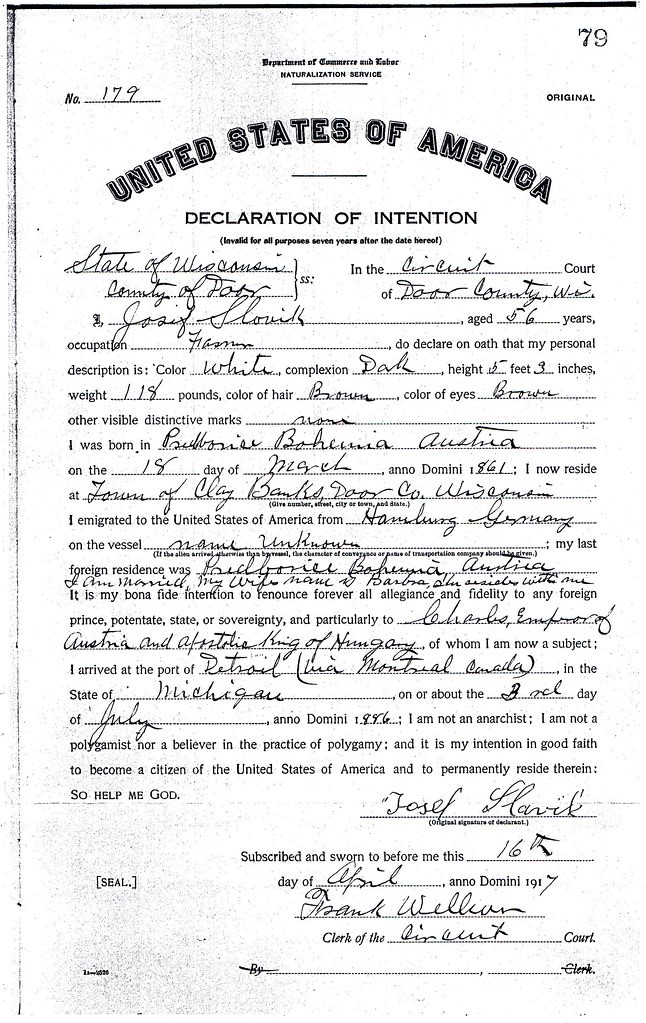 79
Department of Commerce and Labor
NATURALIZATION SERVICE
No. 179
ORIGINAL
UNITED STATES OF AMERICA
DECLARATION OF INTENTION
(Invalid for all purposes seven years after the date hereof)
State of Wisconsin
County of Door
ss:
In the Circuit Court
of Door County, Wis.
I, Josef Slovik, aged 56 years,
occupation Farmer, do declare on oath that my personal
description is: Color White, complexion Dark, height 5 feet 3 inches,
weight 118 pounds, color of hair Brown, color of eyes Brown
other visible distinctive marks none
I was born in Predborice Bohemia Austria
on the 18 day of March, anno Domini 1861; I now reside
at Town of Clay Banks, Door Co. Wisconsin
(Give number, street, city or town, and State.)
I emigrated to the United States of America from Hamburg Germany
on the vessel name unknown; my last
(If the alien arrived otherwise than by vessel, the character of conveyance or name of transportation company should be given.)
foreign residence was Predborice Bohemia, Austria
I am married, my wife name is Barbra, resides with me
It is my bona fide intention to renounce forever all allegiance and fidelity to any foreign
prince, potentate, state, or sovereignty, and particularly to Charles, Emperor of
Austria and apostolic King of Hungary, of whom I am now a subject;
I arrived at the port of Detroit (via Montreal Canada), in the
State of Michigan, on or about the 3rd day
of July, anno Domini 1886; I am not an anarchist; I am not a
polygamist nor a believer in the practice of polygamy; and it is my intention in good faith
to become a citizen of the United States of America and to permanently reside therein:
SO HELP ME GOD.
"Josef Slavik"
(Original signature of declarant.)
Subscribed and sworn to before me this 16th
[SEAL.]
day of April, anno Domini 1917
Frank Wellever
Clerk of the Circuit Court.
By , Clerk.